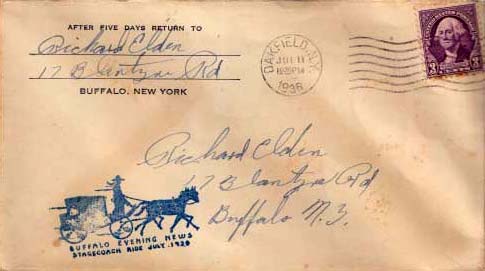 AFTER FIVE DAYS RETURN TO
Richard Elden
17 Blantyre Rd
BUFFALO, NEW YORK
OAKFIELD, N.Y.
1936
3
3
Richard Elden
17 Blantyre Rd
Buffalo N.Y.
BUFFALO EVENING NEWS
STAGECOACH RIDE JULY.1936